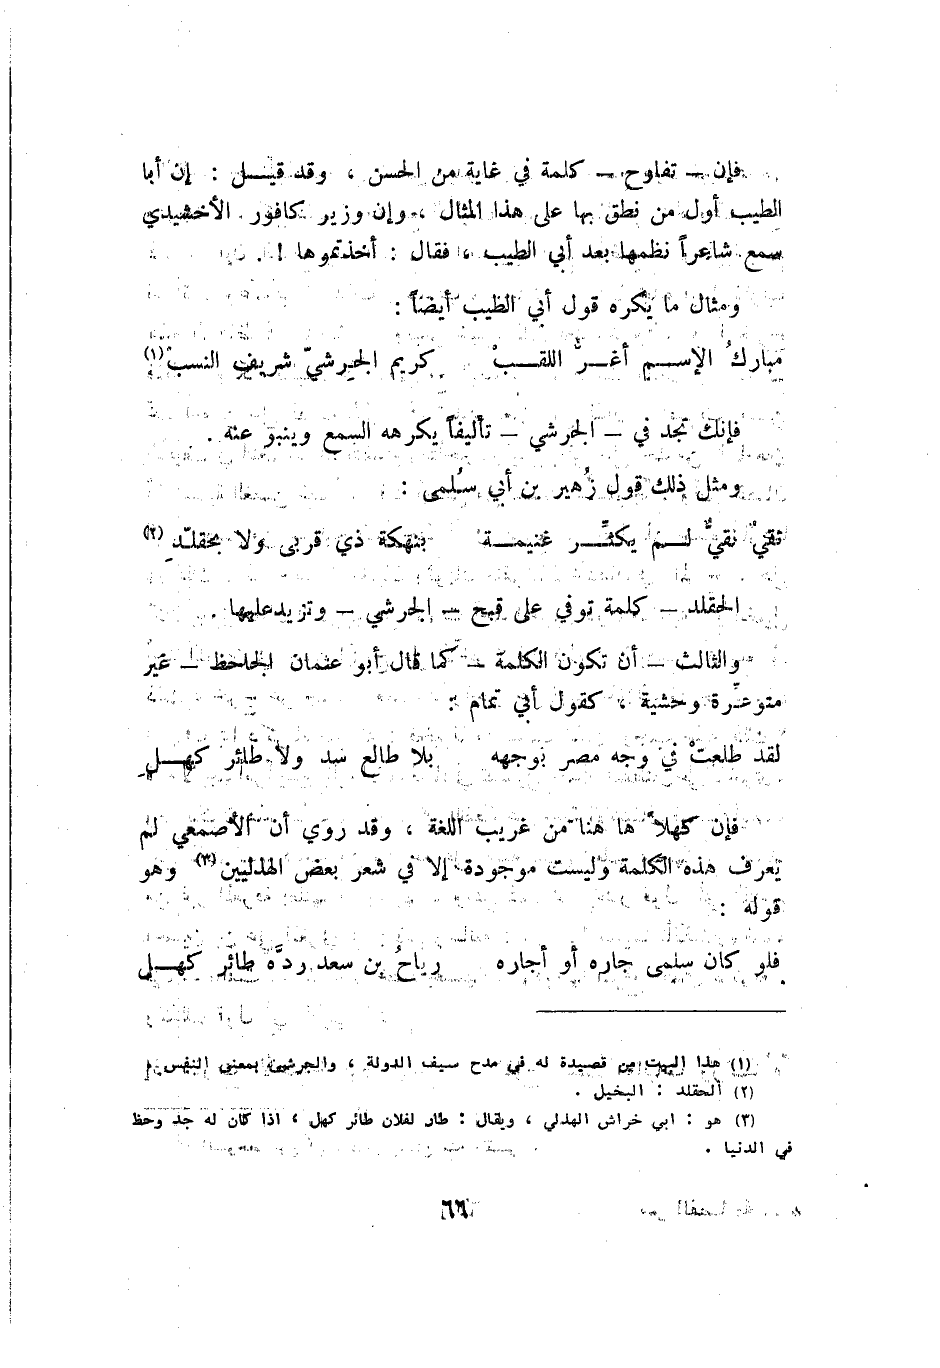 فإن – تفاوح – كلمة في غاية من الحسن ، وقد قيـــل : إن أبا
الطيب أول من نطق بها على هذا المثال ، وإن وزير كافور الأخشيدي
سمع شاعراً نظمها بعد أبي الطيب ، فقال : أخذتموها !
ومثال ما يكره قول أبي الطيب أيضاً :
مبارك الإســـم أغـــرُّ اللقـــبْ كريم الجرشيّ شريف النسبْ (١)
فإنك تجد في – الجرشي – تأليفاً يكرهه السمع وينبو عنه .
ومثل ذلك قول زُهير بن أبي سُلمى :
تقيٌ نقيٌّ لـــم يكثِّـــر غنيمـــة بنهكة ذي قربى ولا بحقلّدِ (٢)
الحقلد – كلمة توفي على قبح – الجرشي – وتزيد عليها .
والثالث – أن تكون الكلمة – كما قال أبو عثمان الجاحظ – غير
متوعِّرة وحشية ، كقول أبي تمام :
لقد طلعتْ في وجه مصر بوجهه بلا طالع سد ولا طائر كهـــلِ
فإن كهلاً ها هنا من غريب اللغة ، وقد روي أن الأصمعي لم
يعرف هذه الكلمة وليست موجودة إلا في شعر بعض الهذليين (٣) وهو
قوله :
فلو كان سلمى جاره أو أجاره رياحُ بن سعد ردَّه طائر كهـــل
(١) هذا البيت من قصيدة له في مدح سيف الدولة ، والجرشى بمعنى النفس .
(٢) الحقلد : البخيل .
(٣) هو : ابي خراش الهذلي ، ويقال : طار لفلان طائر كهل ، اذا كان له جد وحظ
في الدنيا .
٦٦